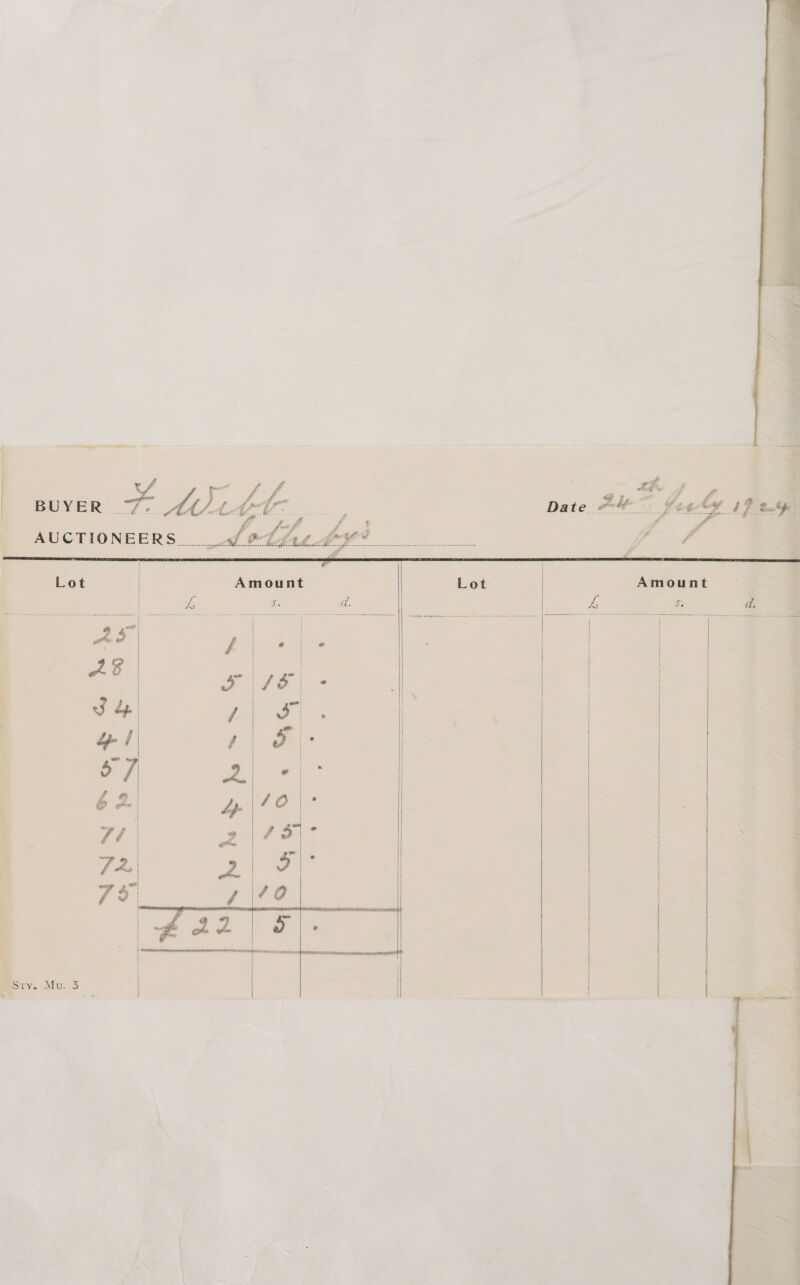 BUYER F. Webb Date 24th July 1924
AUCTIONEERS Sotheby's
Lot Amount Lot Amount
£ s. d. £ s. d.
25 1 . .
28 5 15 .
34 1 5 .
41 1 5 .
57 2 . .
62 4 10 .
71 2 15 .
72 2 5 .
75 1 10
£ 22 5 .
Sty. Mu. 3